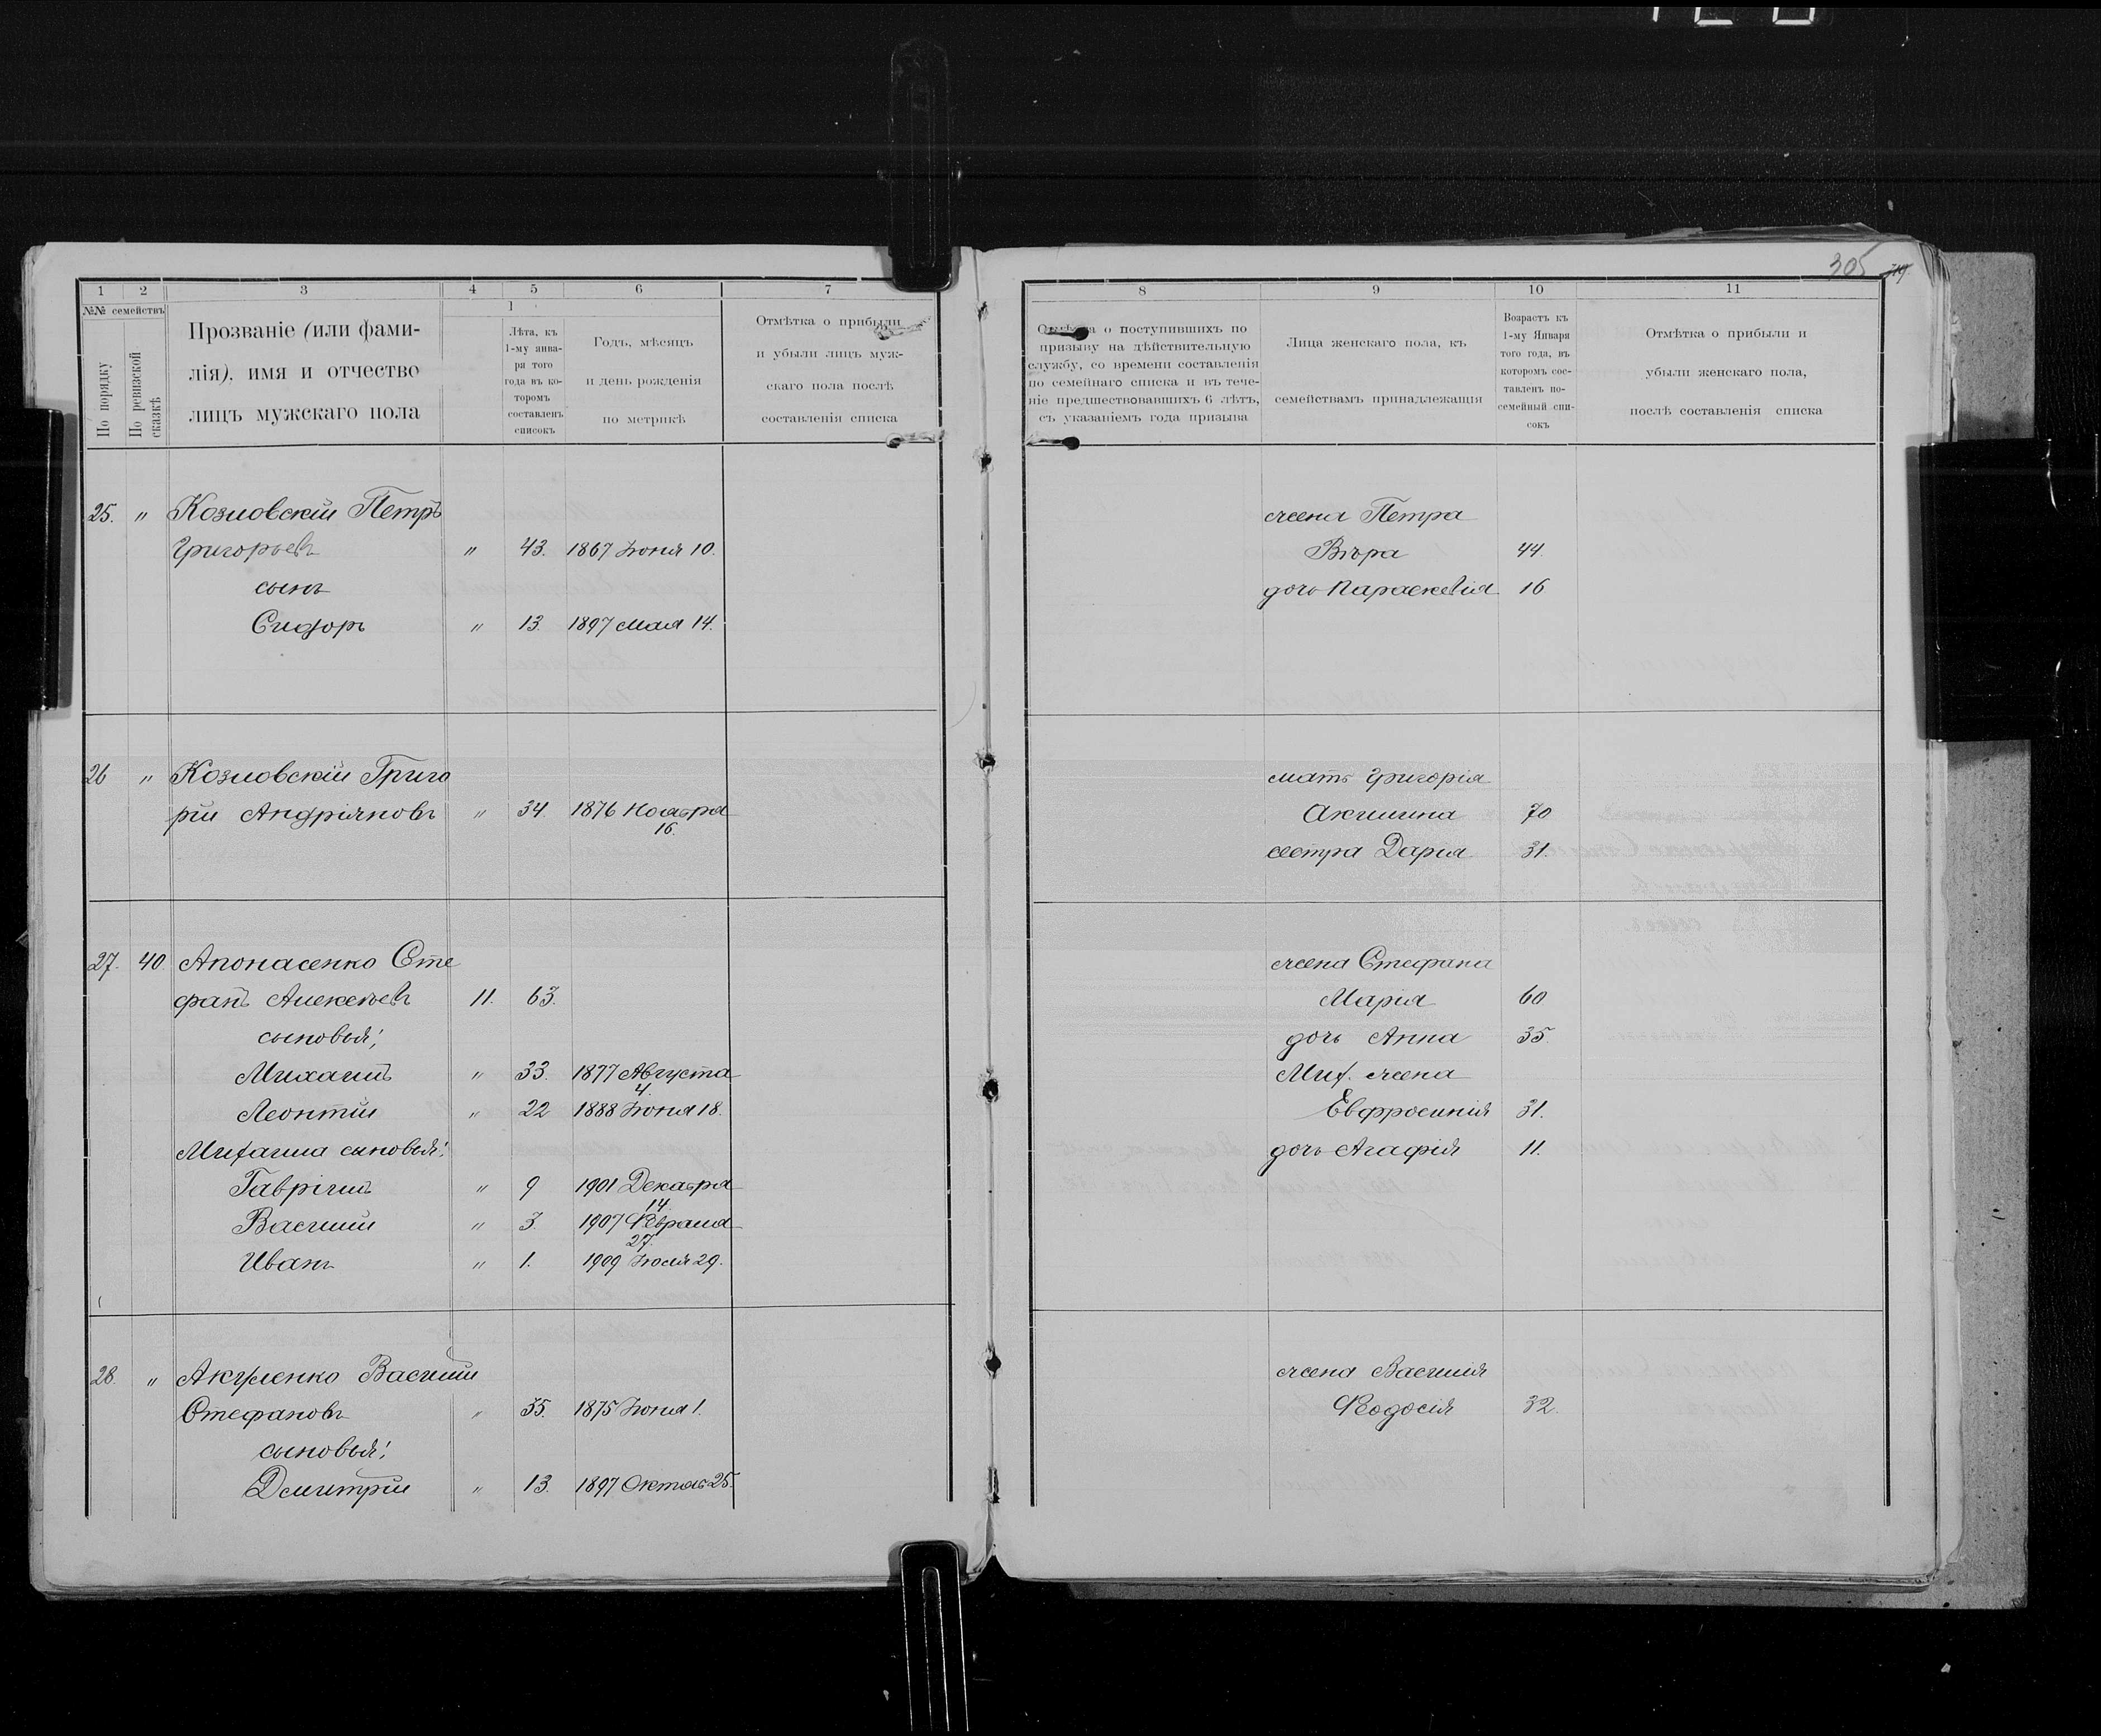 305 719
1 2 3 4 5 6 7
№№ семействъ
По порядку
По ревизской сказкѣ
Прозваніе (или фами-
лія), имя и отчество
лицъ мужскаго пола
1
Лѣта, къ
1-му янва-
ря того
года въ ко-
торомъ
составленъ
списокъ
Годъ, мѣсяцъ
и день рожденія
по метрикѣ
Отмѣтка о прибыли
и убыли лицъ муж-
скаго пола послѣ
составленія списка
25. " Козловскій Петръ
Григорьевъ " 43. 1867 Іюня 10.
сынъ
Сидоръ " 13. 1897 Мая 14.
26 " Козловскій Григо
рій Андріяновъ " 34. 1876 Ноября
16.
27. 40. Апонасенко Сте
фанъ Алексѣевъ 11. 63.
сыновья:
Михаилъ " 33. 1877 Августа
4.
Леонтій " 22 1888 Іюня 18.
Михаила сыновья:
Гавріилъ " 9 1901 Декабря
14.
Василій " 3. 1907 Февраля
27.
Иванъ " 1. 1909 Іюля 29.
28. " Акуленко Василій
Стефановъ " 35. 1875 Іюня 1.
сыновья:
Дмитрій " 13. 1897 Октяб 25.
8 9 10 11
Отмѣтка о поступившихъ по
призыву на дѣйствительную
службу, со времени составленія
по семейнаго списка и въ тече-
ніе предшествовавшихъ 6 лѣтъ,
съ указаніемъ года призыва
Лица женскаго пола, къ
семействамъ принадлежащія
Возрастъ къ
1-му Января
того года, въ
которомъ сос-
тавленъ по-
семейный спи-
сокъ
Отмѣтка о прибыли и
убыли женскаго пола,
послѣ составленія списка
жена Петра
Вѣра 44.
дочь Параскевія 16
мать Григорія
Акилина 70
сестра Дарья 31.
жена Стефана
Марія 60
дочь Анна 35.
Мих. жена
Евфросинія 31.
дочь Агафія 11.
жена Василія
Феодосія 32.